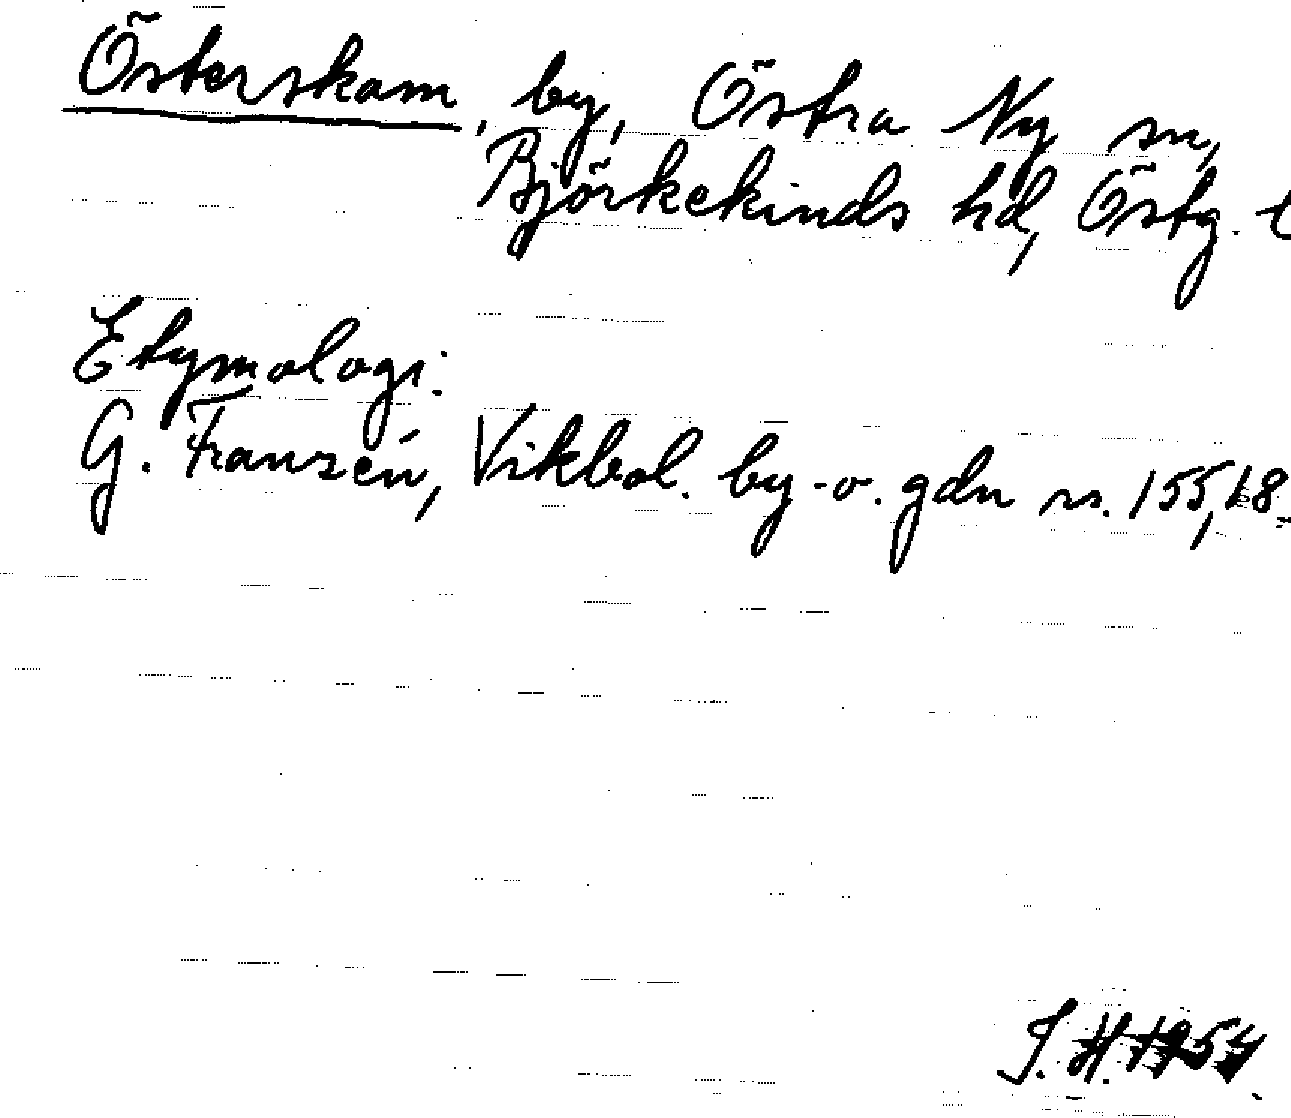 Österskam, by, Östra Ny sn,
Björkekinds hd, Östg. l
Etymologi:
G. Franzén, Vikbol. by- o. gdn ns. 155, 18
J. H. 1954.